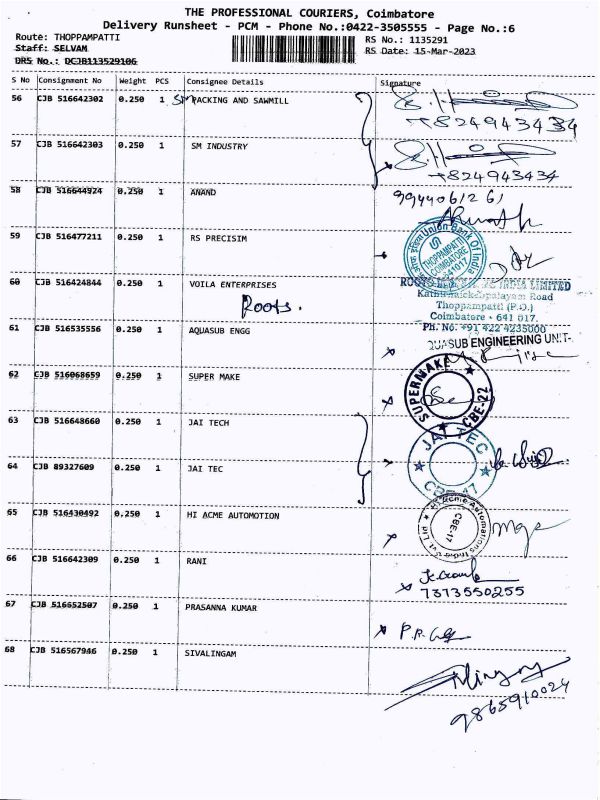 THE PROFESSIONAL COURIERS, Coimbatore
Delivery Runsheet - PCM - Phone No.:0422-3505555 - Page No.:6
Route: THOPPAMPATTI
RS No.: 1135291
Staff: SELVAM
RS Date: 15-Mar-2023
DRS No.: DCJB113529106
S No Consignment No Weight PCS Consignee Details Signature
56 CJB 516642302 0.250 1 SM PACKING AND SAWMILL
8249434 34
57 CJB 516642303 0.250 1 SM INDUSTRY
824943434
58 CJB 516644924 0.250 1 ANAND
9944061261
59 CJB 516477211 0.250 1 RS PRECISIM
Union Bank Of India
THOPPAMPATTI
COIMBATORE
641017
60 CJB 516424844 0.250 1 VOILA ENTERPRISES
Roots.
ROOTS INDIA LIMITED
Kathirnaickenpalayam Road
Thoppampatti (P.O.)
Coimbatore - 641 017.
Ph. No. +91 422 4235000
61 CJB 516535556 0.250 1 AQUASUB ENGG
QUASUB ENGINEERING UNIT-
62 CJB 516068659 0.250 1 SUPER MAKE
SUPERMAKE
CBE-22
63 CJB 516648660 0.250 1 JAI TECH
JAI TEC
CBE-17
64 CJB 89327609 0.250 1 JAI TEC
65 CJB 516430492 0.250 1 HI ACME AUTOMOTION
Acme Automations India Pvt. Ltd
CBE-17
66 CJB 516642309 0.250 1 RANI
7373550255
67 CJB 516652507 0.250 1 PRASANNA KUMAR
68 CJB 516567946 0.250 1 SIVALINGAM
9865910024